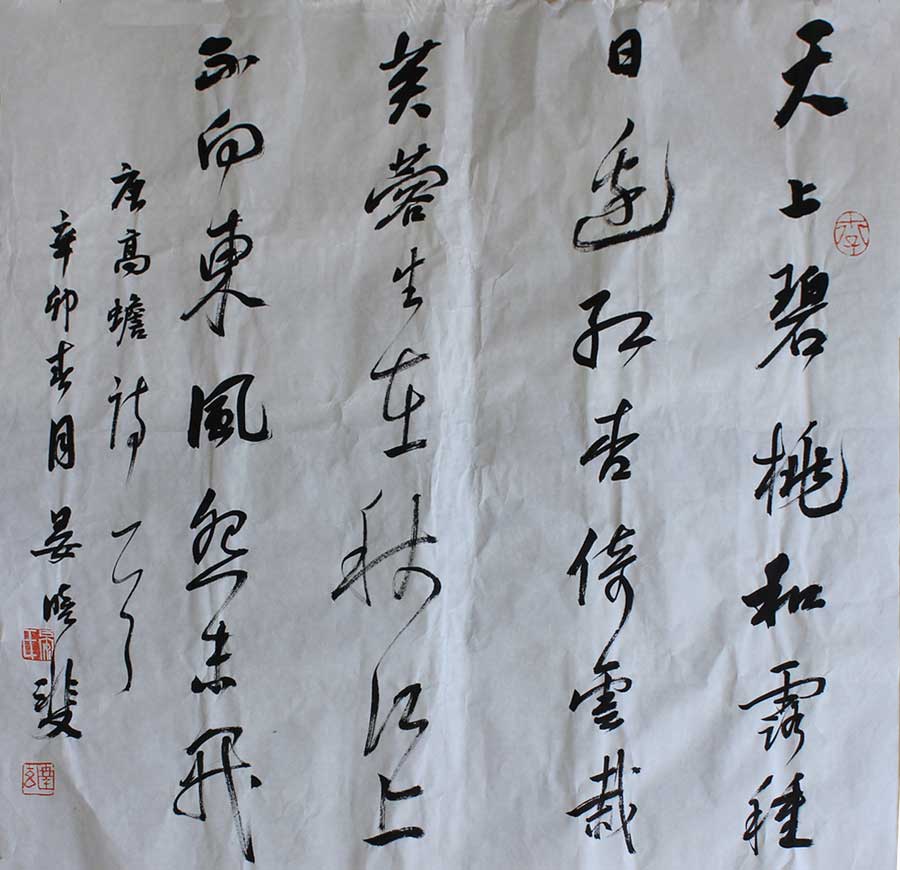 天上碧桃和露種
日邊紅杏倚雲栽
芙蓉生在秋江上
不向東風怨未開
唐高蟾詩一首
辛卯春月晏曉斐